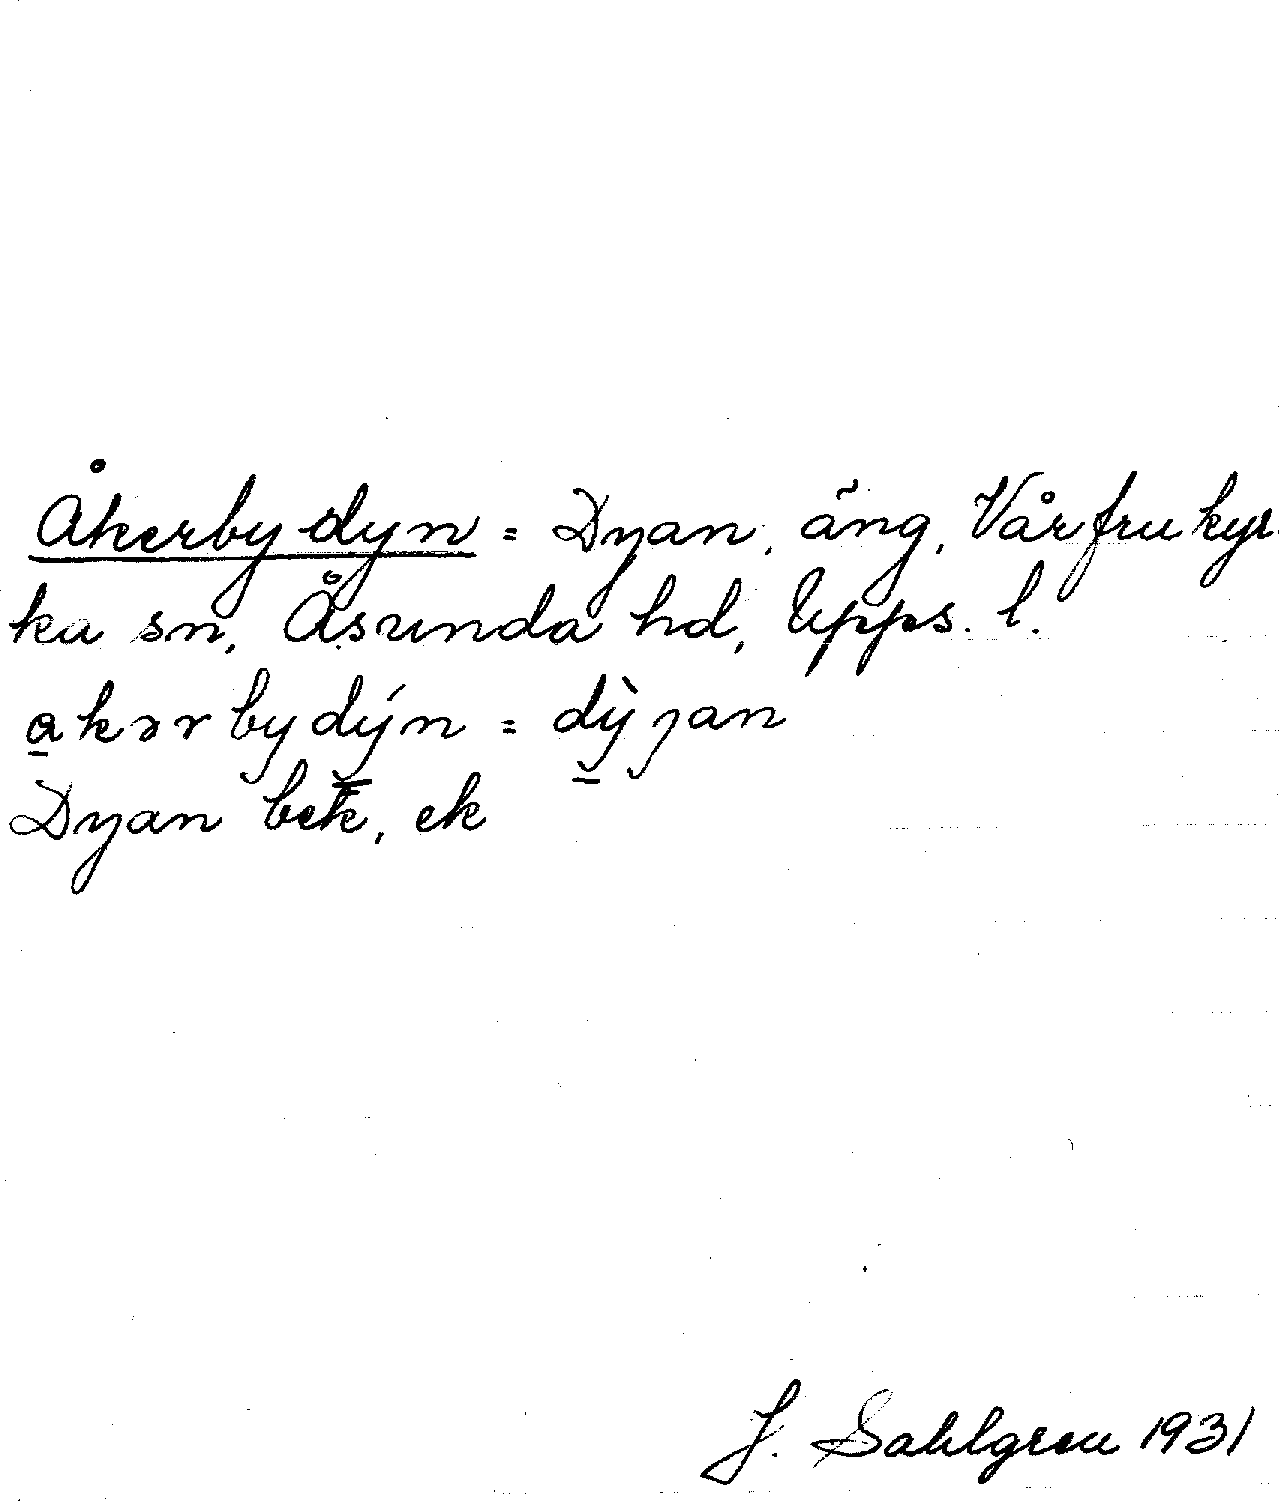 Åkerbydyn = Dyan, äng, Vårfrukyr-
ka sn, Åsunda hd, Upps. l.
a̠kərbydý̠n = dỳ̠jan
Dyan bek, ek
J. Sahlgren 1931